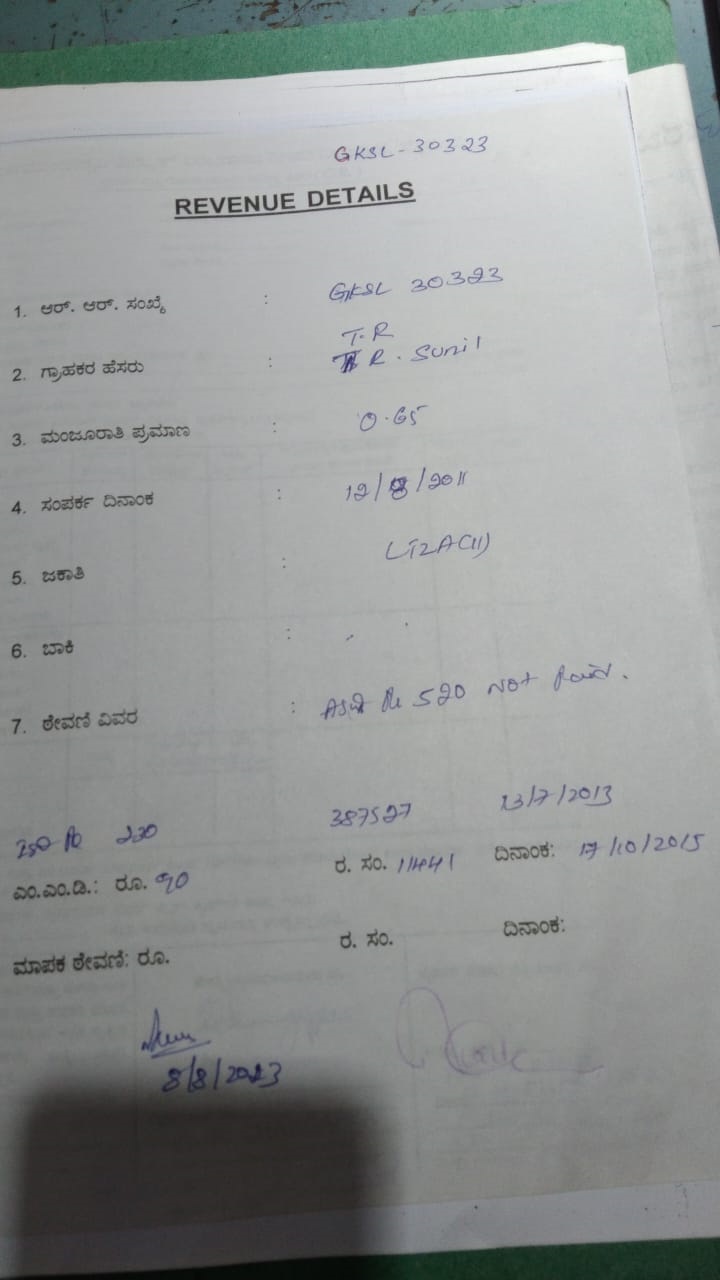 GKSL-30323
REVENUE DETAILS
1. ಆರ್. ಆರ್. ಸಂಖ್ಯೆ : GKSL 30323
T.R
2. ಗ್ರಾಹಕರ ಹೆಸರು : R. Sunil
3. ಮಂಜೂರಾತಿ ಪ್ರಮಾಣ : 0.65
4. ಸಂಪರ್ಕ ದಿನಾಂಕ : 12/8/2011
5. ಜಕಾತಿ :
6. ಬಾಕಿ :
7. ಠೇವಣಿ ವಿವರ : 520 Not Paid.
230 387527 23/7/2013
ಎಂ.ಎಂ.ಡಿ.: ರೂ. 90 ರ. ಸಂ. 11441 ದಿನಾಂಕ: 17/10/2015
ಮಾಪಕ ಠೇವಣಿ: ರೂ. ರ. ಸಂ. ದಿನಾಂಕ:
8/8/2023